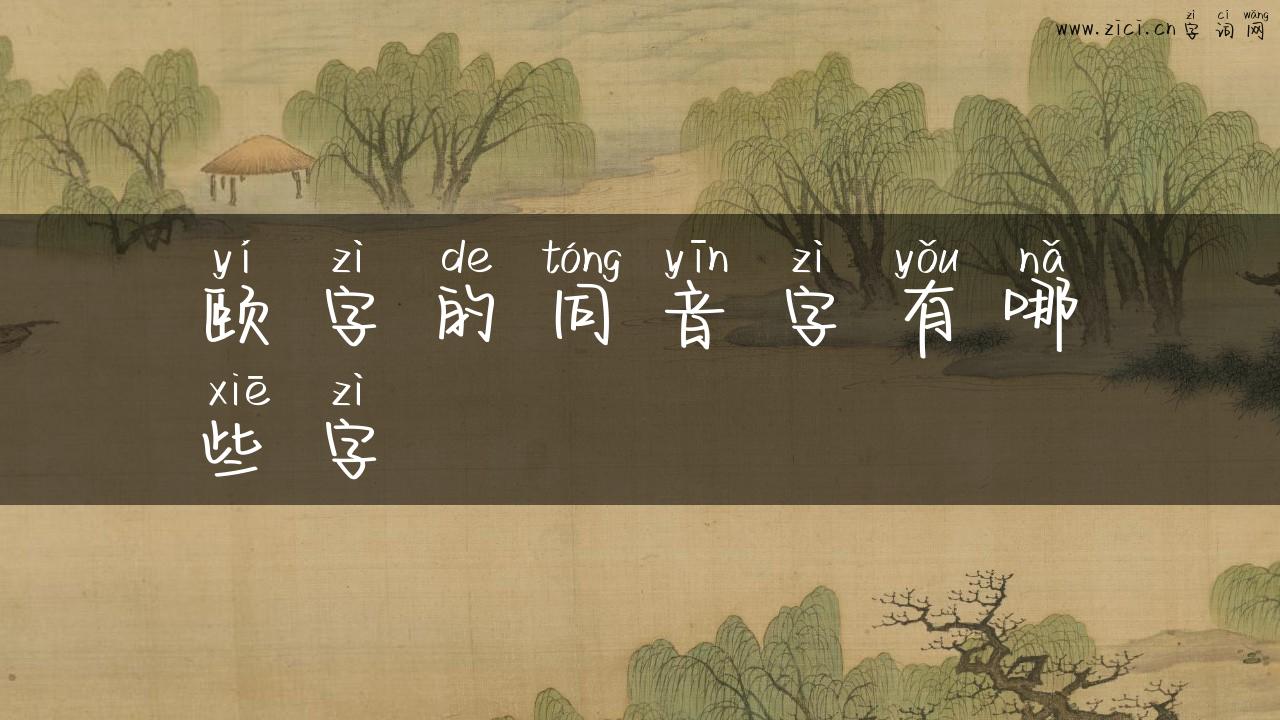 zì cí wǎng
www.zici.cn 字 词 网
yí zì de tóng yīn zì yǒu nǎ
颐 字 的 同 音 字 有 哪
xiē zì
些 字